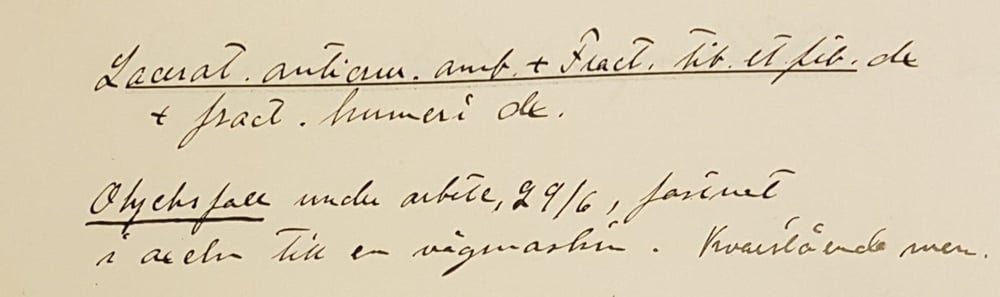 Lacerat. anticrur. amb. + Fract. tib. et fib. dx
+ fract. humeri dx.
Olycksfall under arbete, 29/6, fastnat
i axeln till en vågmaskin. Kvarstående men.